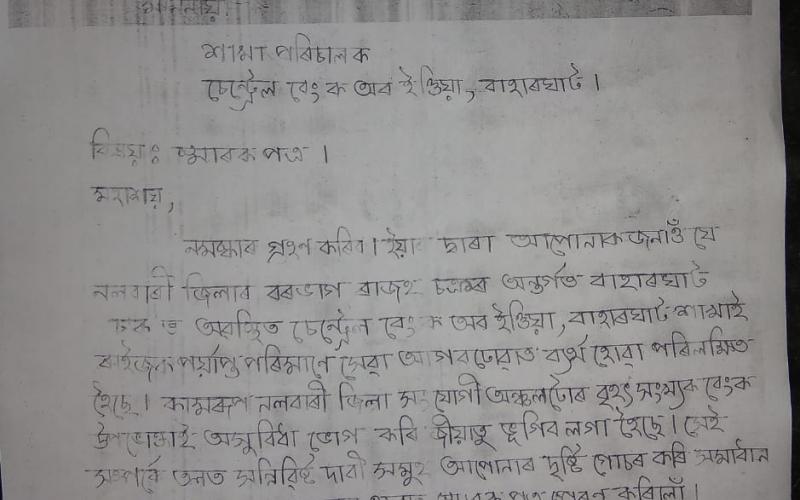 শাখা পৰিচালক
চেন্ট্ৰেল বেংক অৱ ইণ্ডিয়া, বাহাৰঘাট।
বিষয়ঃ স্মাৰক পত্ৰ।
মহাশয়,
নমস্কাৰ গ্ৰহণ কৰিব। ইয়াৰ দ্বাৰা আপোনাক জনাওঁ যে
নলবাৰী জিলাৰ বৰভাগ ৰাজহ চক্ৰৰ অন্তৰ্গত বাহাৰঘাট
চকত অৱস্থিত চেন্ট্ৰেল বেংক অৱ ইণ্ডিয়া, বাহাৰঘাট শাখাই
ৰাইজক পৰ্য্যাপ্ত পৰিমানে সেৱা আগবঢ়োৱাত ব্যৰ্থ হোৱা পৰিলক্ষিত
হৈছে। কামৰূপ নলবাৰী জিলা সংযোগী অঞ্চলটোৰ বৃহৎ সংখ্যক বেংক
উপভোক্তাই অসুবিধা ভোগ কৰি জীয়াতু ভূগিব লগা হৈছে। সেই
সম্পৰ্কে তলত সন্নিৱিষ্ট দাবী সমূহ আপোনাৰ দৃষ্টি গোচৰ কৰি সমাধান
স্মাৰক পত্ৰ প্ৰেৰণ কৰিলোঁ।